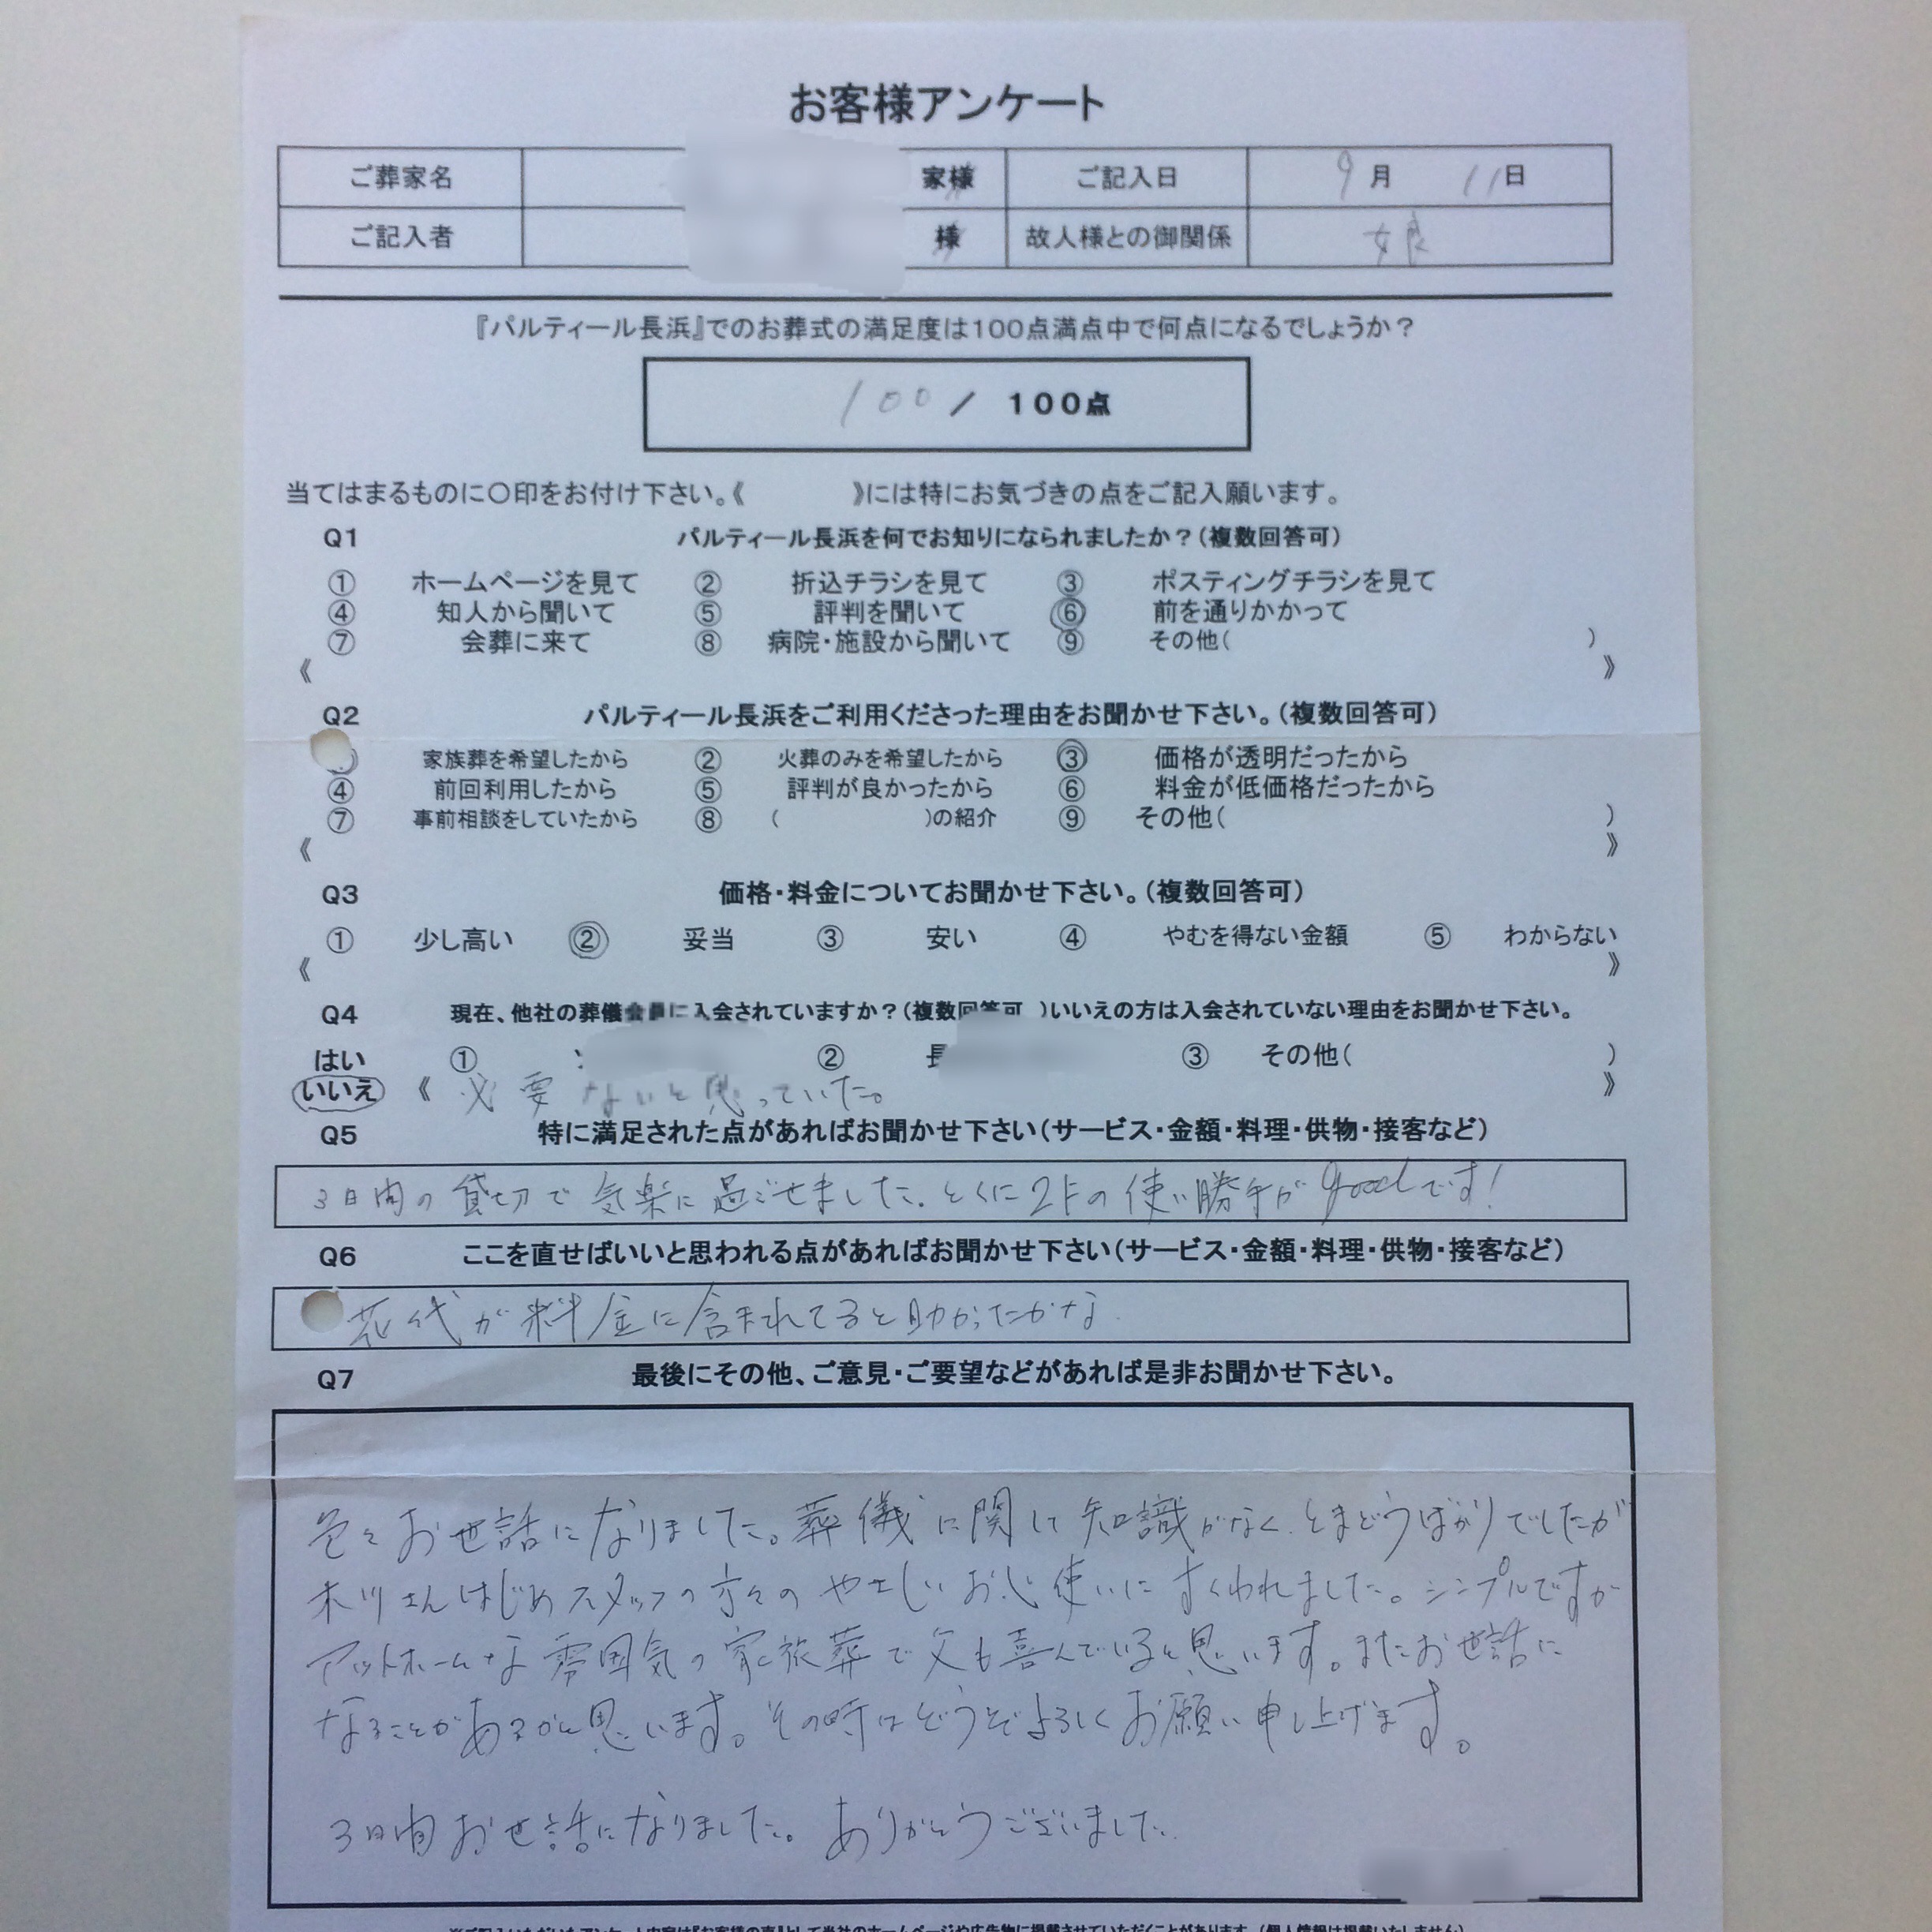 お客様アンケート
ご葬家名 家様 ご記入日 9月 11日
ご記入者 様 故人様との御関係 娘
『パルティール長浜』でのお葬式の満足度は100点満点中で何点になるでしょうか？
100 / 100点
当てはまるものに〇印をお付け下さい。《 》には特にお気づきの点をご記入願います。
Q1 パルティール長浜を何でお知りになられましたか？（複数回答可）
① ホームページを見て ② 折込チラシを見て ③ ポスティングチラシを見て
④ 知人から聞いて ⑤ 評判を聞いて ⑥ 前を通りかかって
⑦ 会葬に来て ⑧ 病院・施設から聞いて ⑨ その他（ ）
《 》
Q2 パルティール長浜をご利用くださった理由をお聞かせ下さい。（複数回答可）
家族葬を希望したから ② 火葬のみを希望したから ③ 価格が透明だったから
④ 前回利用したから ⑤ 評判が良かったから ⑥ 料金が低価格だったから
⑦ 事前相談をしていたから ⑧ （ ）の紹介 ⑨ その他（ ）
《 》
Q3 価格・料金についてお聞かせ下さい。（複数回答可）
① 少し高い ② 妥当 ③ 安い ④ やむを得ない金額 ⑤ わからない
《 》
Q4 現在、他社の葬儀会員に入会されていますか？（複数回答可 ）いいえの方は入会されていない理由をお聞かせ下さい。
はい ① ② 長 ③ その他（ ）
いいえ 《 必要ないと思っていた。 》
Q5 特に満足された点があればお聞かせ下さい（サービス・金額・料理・供物・接客など）
3日間の貸切で気楽に過ごせました。とくに2Fの使い勝手がgoodです！
Q6 ここを直せばいいと思われる点があればお聞かせ下さい（サービス・金額・料理・供物・接客など）
花代が料金に含まれてると助かったかな.
Q7 最後にその他、ご意見・ご要望などがあれば是非お聞かせ下さい。
色々お世話になりました。葬儀に関して知識がなく、とまどうばかりでしたが
木川さんはじめスタッフの方々のやさしいお心使いにすくわれました。シンプルですが
アットホームな雰囲気の家族葬で父も喜んでいると思います。またお世話に
なることがあるかと思います。その時はどうぞよろしくお願い申し上げます。
3日間お世話になりました。ありがとうございました.
※ご記入いただいたアンケート内容は『お客様の声』として当社のホームページや広告物に掲載させていただくことがあります。（個人情報は掲載いたしません）